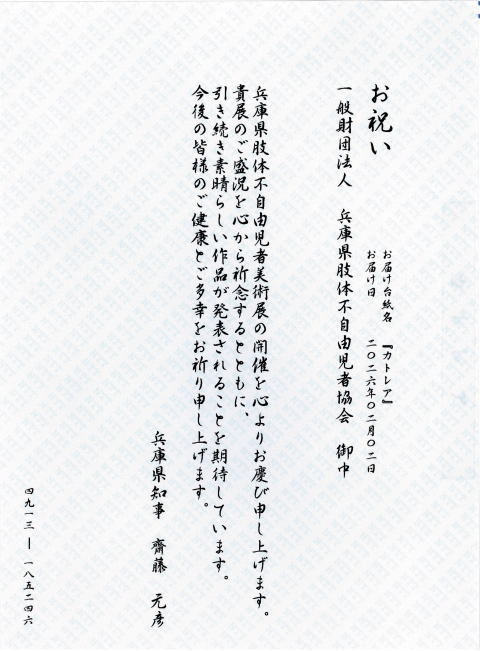 お祝い
お届け台紙名　『カトレア』
お届け日　二〇二六年〇二月〇二日
一般財団法人　兵庫県肢体不自由児者協会　御中
兵庫県肢体不自由児者美術展の開催を心よりお慶び申し上げます。
貴展のご盛況を心から祈念するとともに、
引き続き素晴らしい作品が発表されることを期待しています。
今後の皆様のご健康とご多幸をお祈り申し上げます。
兵庫県知事　齋藤　元彦
四九一三ー一八五二四六